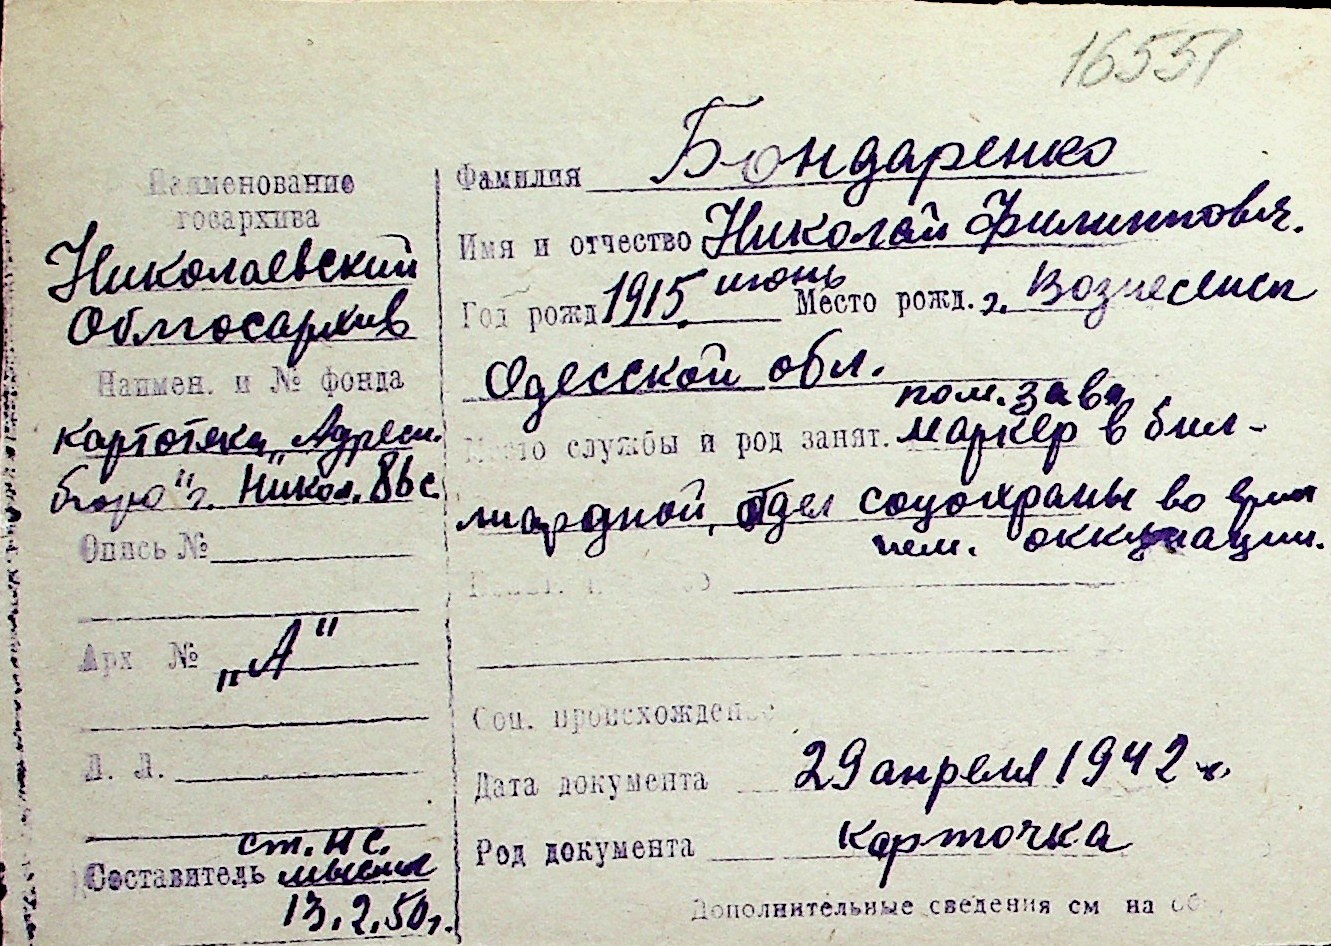 16551
Наименование
госархива
Николаевский
Облгосархив
Наимен. и № фонда
картотека „Адресн.
бюро" г. Никол. 86 с
Опись №
Арх № „А"
Л. Л.
ст. н с.
Составитель
13.2.50г.
Фамилия Бондаренко
Имя и отчество Николай Филиппович.
Год рожд 1915 июнь Место рожд. г. Вознесенск
Одесской обл.
пом. зав.
Место службы и род занят. маркер в бил-
лиардной, отдел соцохраны во врем
нем. оккупации.
Соц. происхождение
Дата документа 29 апреля 1942 г.
Род документа карточка
Дополнительные сведения см на об